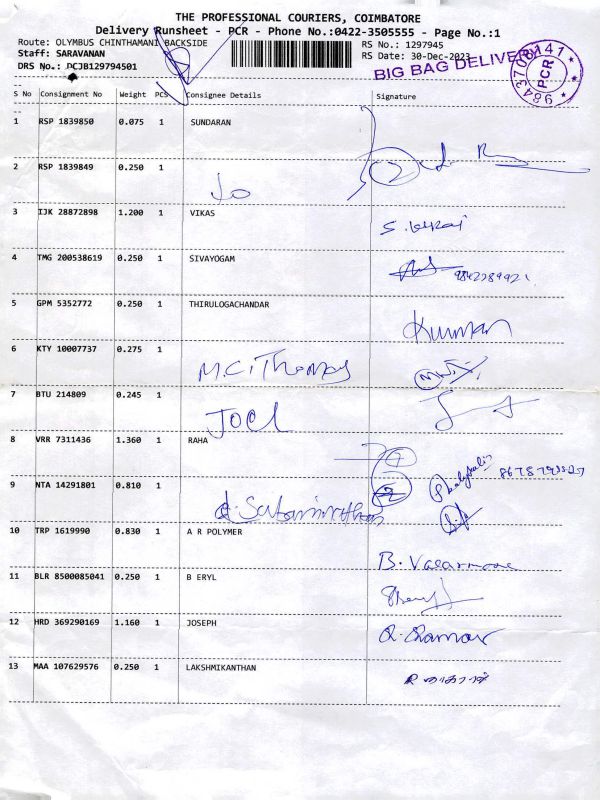 THE PROFESSIONAL COURIERS, COIMBATORE
Delivery Runsheet - PCR - Phone No.:0422-3505555 - Page No.:1
Route: OLYMBUS CHINTHAMANI BACKSIDE RS No.: 1297945
Staff: SARAVANAN RS Date: 30-Dec-2023
DRS No.: PCJB129794501
BIG BAG DELIVERY
PCR
S No Consignment No Weight PCS Consignee Details Signature
1 RSP 1839850 0.075 1 SUNDARAN
2 RSP 1839849 0.250 1
3 IJK 28872898 1.200 1 VIKAS
4 TMG 200538619 0.250 1 SIVAYOGAM
5 GPM 5352772 0.250 1 THIRULOGACHANDAR
Kumman
6 KTY 10007737 0.275 1
M.C.Thomas
7 BTU 214809 0.245 1
JOEL
8 VRR 7311436 1.360 1 RAHA
9 NTA 14291801 0.810 1
10 TRP 1619990 0.830 1 A R POLYMER
11 BLR 8500085041 0.250 1 B ERYL
12 HRD 369290169 1.160 1 JOSEPH
13 MAA 107629576 0.250 1 LAKSHMIKANTHAN